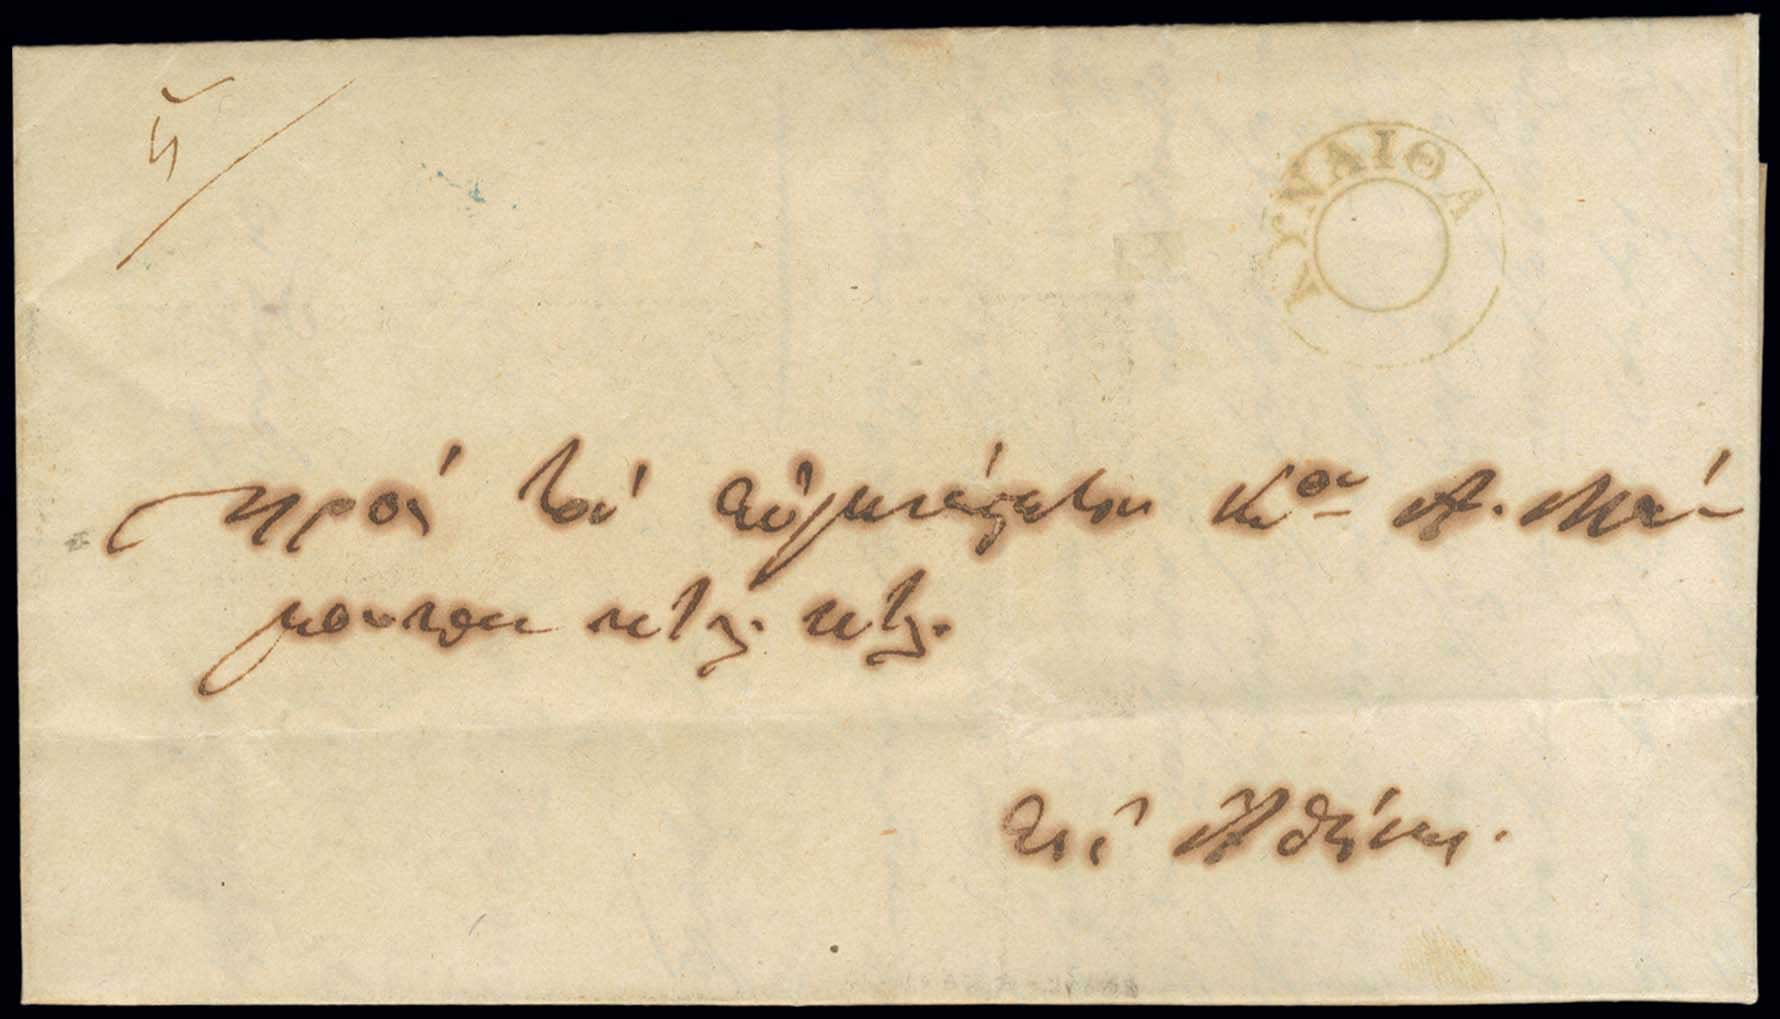 ΚΥΝΑΙΘΑ
Πρὸς τὸν εὐγενέστατον Κον Α.
κτλ. κτλ.
εἰς Ἀθήνας.